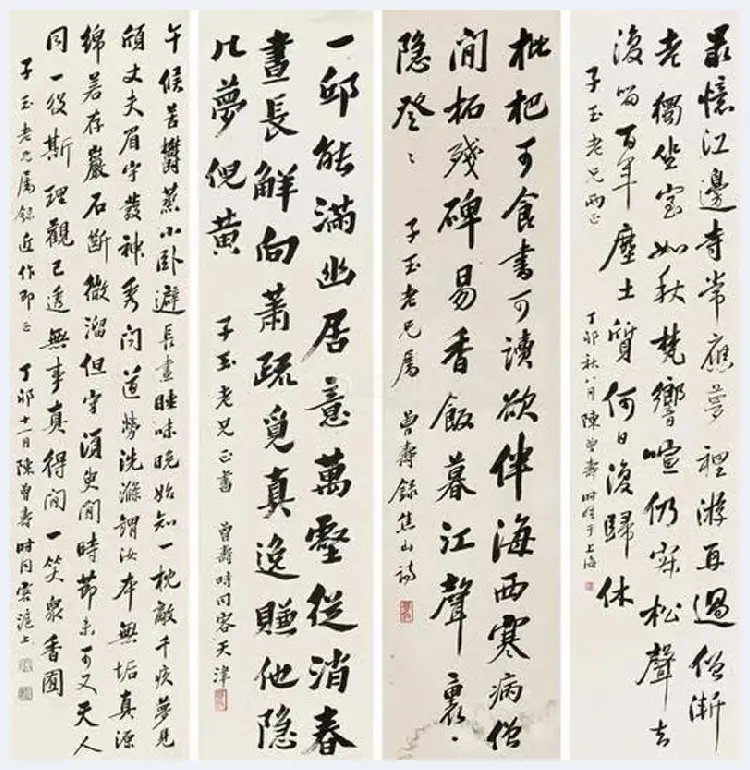 最憶江邊寺常應夢裡游再過僧漸
老獨坐室如秋梵響喧仍寂松聲去
復留百年塵土質何日復歸休
子玉老兄兩正
丁卯秋八月陳曾壽時客于上海
枇杷可食書可讀欲伴海西寒病僧
閒拓殘碑易香飯暮江聲裏
隱登〻
子玉老兄屬
曾壽錄焦山詩
一邱能滿幽居意萬壑從消春
晝長鮮向蕭疏覓真逸賺他隱
几夢倪黃
子玉老兄正書
曾壽時同客天津
午候苦鬱蒸小卧避長晝睡味晚始知一枕敵千疚夢見
頎丈夫眉宇發神秀問道勞洗滌謂汝本無垢真源
綿若存巖石斷微溜但守須臾間時節未可又天人
同一役斯理觀已透無事真得閒一笑衆香園
子玉老兄屬錄近作即正
丁卯十一月陳曾壽時同客滬上